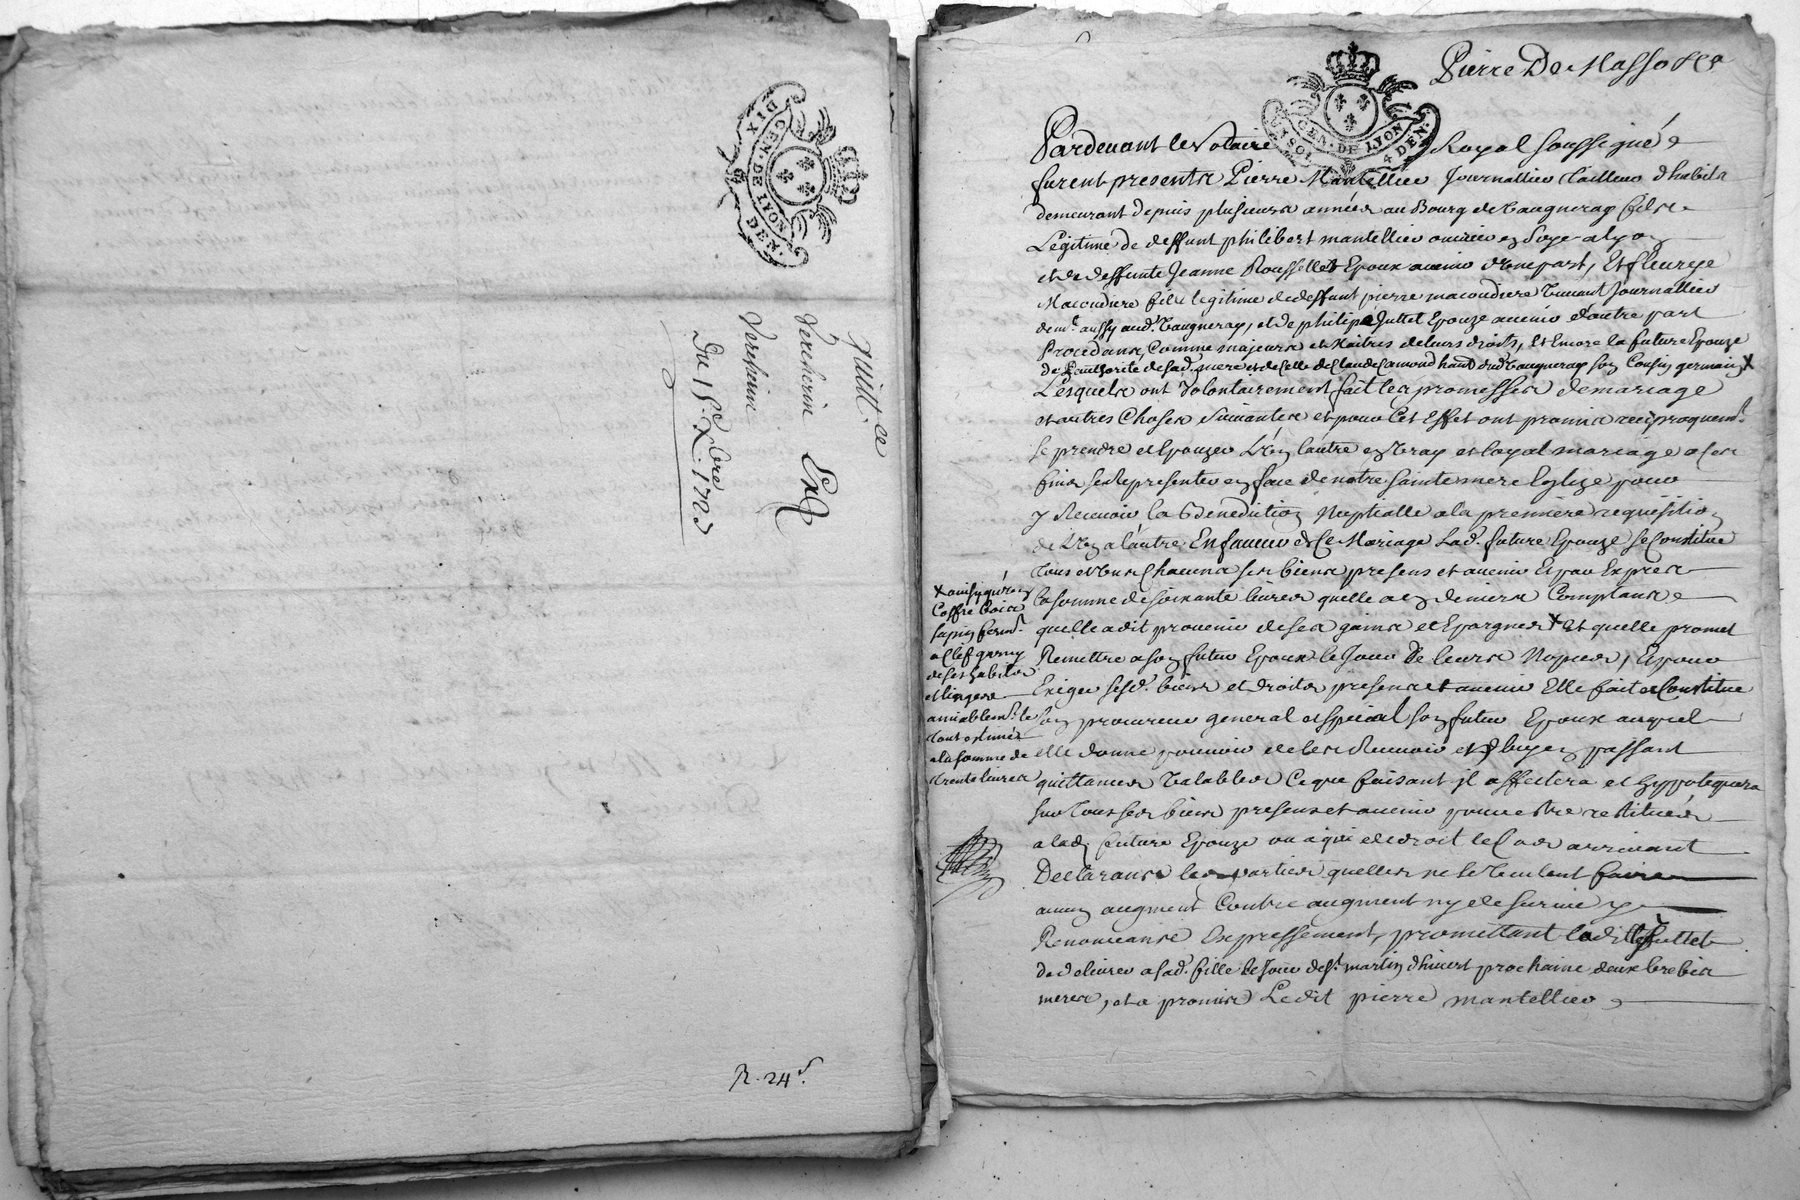 DIX DEN.
GEN. DE LYON
Quitt.ce
Verchere
Du 15e Xbre 1723
R. 24s.
Pierre De Masso
UN SOL 4 DEN.
GEN. DE LYON
Pardevant le Notaire Royal soussigné
furent presents Pierre Mantellier Journallier tailleur d'habits
demeurant depuis plusieurs années au Bourg de Vaugneray fils
Legitime de deffunt philibert mantellier ouvrier en soye a lyon
et de deffunte Jeanne Rousselle Epoux avenir d'une part, Et fleurye
Macoudiere fille legitime de deffunt pierre macoudiere vivant Journallier
dem.t aussy aud. Vaugneray, et de philipe Juttet Epouze avenir d'autre part
Procedants, Comme majeurs et Maitres de leurs droits, Et Encore la future Epouze
de L'authorité de sad. mere et de Celle de Claude Camond hant dud. Vaugneray son Cousin germain X
Lesquels ont Volontairement fait les promesses de mariage
et autres Choses suivantes et pour Cet Effet ont promis reciproquem.t
se prendre et Epouzer L'un L'autre en Vray et loyal mariage a Ces
fins se Representer en face de notre sainte mere Eglize pour
y Recevoir la Benediction Nuptialle a la premiere requisition
de L'un a l'autre En faveur de Ce Mariage Lad. future Epouze se Constitue
tous et Uns Chacuns ses biens presens et avenir Et par Exprès
la somme de soixante livres quelle a en deniers Comptans
quelle a dit provenir de ses gains et Epargnes X Et quelle promet
Remettre a son futur Epoux le Jour de leurs Nopces, Et pour
Exiger sesd. biens et droits presens et avenir Elle fait et Constitue
son procureur general et special son futur Epoux auquel
elle donne pouvoir de les Recevoir et d'iceux en passant
quittances Valables Ce que faisant il affectera et hypotequera
sur tous ses biens presens et avenir pour estre restituées
a lad. future Epouze ou a qui de droit le Cas arrivant
Declarans les parties quelles ne se Veulent faire
aucun augment Contre augment ny de survie y
Renonceans Expressement, promettant ladite Juttet
de delivrer a sad. fille le Jour de St. martin d'hivert prochaine deux brebis
meres, et a promis Ledit pierre mantellier
X ainsy qu'un
Coffre bois
sapin ferm.t
a Clef garny
de ses habits
et linges
amiablem.t le
tout estimé
a la somme de
trente livres